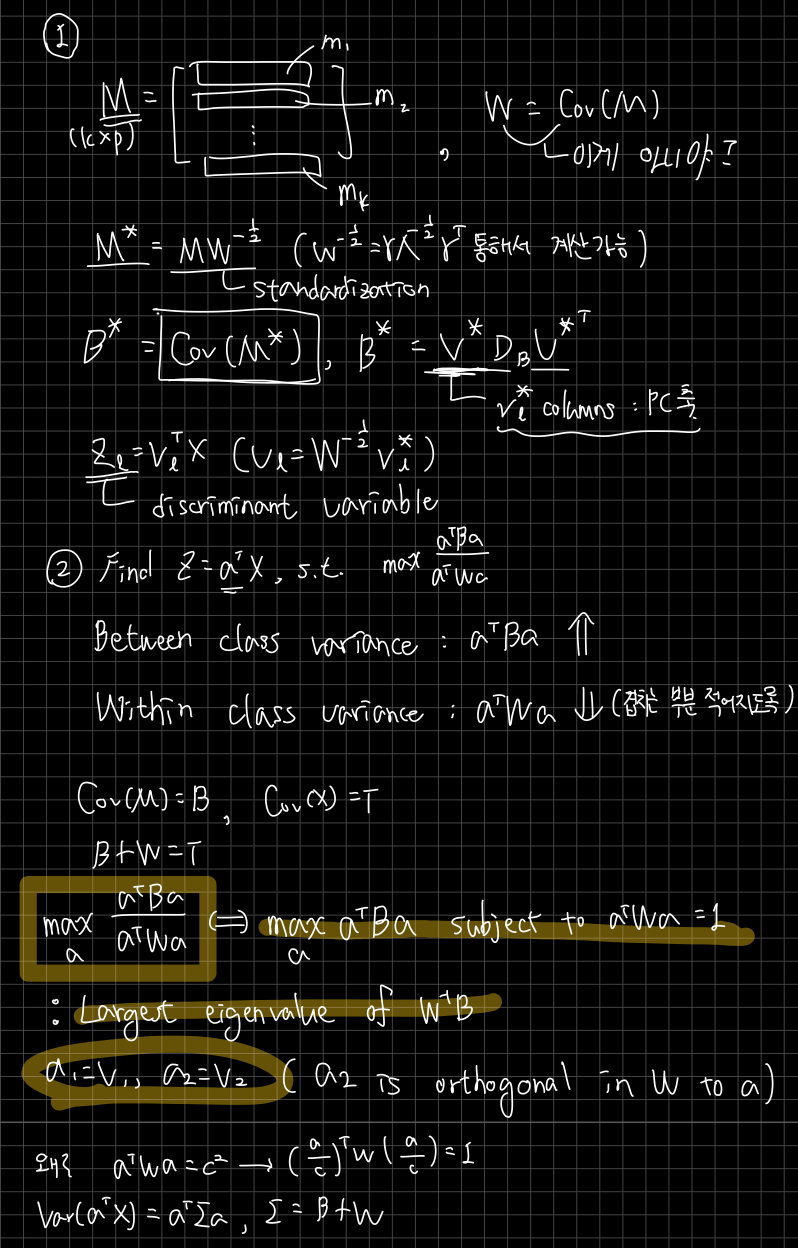 ①
M = [ m₁
(k×p) m₂
⋮
m_k ] , W = Cov(M)
이게 아니야?
M* = MW^{-1/2} (W^{-1/2} = γΛ^{-1/2}γᵀ 통해서 계산가능)
standardization
B* = Cov(M*), B* = V* D_B U*ᵀ
v_ℓ* columns : PC축
Z_ℓ = V_ℓᵀX (υ_ℓ = W^{-1/2} v_ℓ*)
discriminant variable
② Find Z = aᵀX, s.t. max aᵀBa / aᵀWa
Between class variance : aᵀBa ⇑
Within class variance : aᵀWa ⇓ (겹치는 부분 적어지도록)
Cov(M) = B , Cov(X) = T
B + W = T
max_a aᵀBa / aᵀWa ⟺ max_a aᵀBa subject to aᵀWa = 1
: Largest eigenvalue of W⁻¹B
a₁ = V₁, a₂ = V₂ ( a₂ is orthogonal in W to a)
왜? aᵀWa = c² → (a/c)ᵀW(a/c) = 1
Var(aᵀX) = aᵀΣa , Σ = B + W